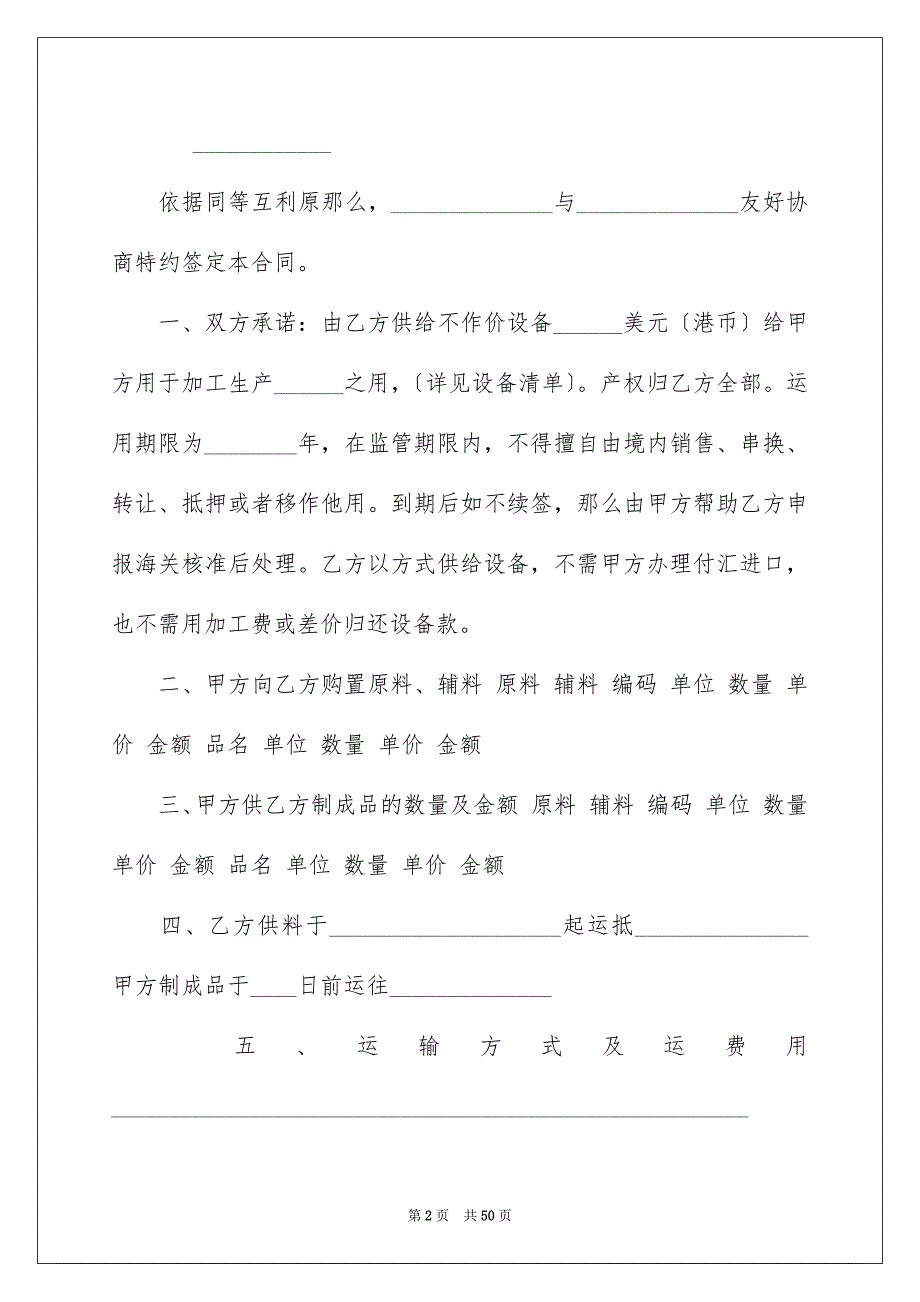 ____________
依据同等互利原那么，______________与______________友好协
商特约签定本合同。
一、双方承诺：由乙方供给不作价设备______美元〔港币〕给甲
方用于加工生产______之用，〔详见设备清单〕。产权归乙方全部。运
用期限为________年，在监管期限内，不得擅自由境内销售、串换、
转让、抵押或者移作他用。到期后如不续签，那么由甲方帮助乙方申
报海关核准后处理。乙方以方式供给设备，不需甲方办理付汇进口，
也不需用加工费或差价归还设备款。
二、甲方向乙方购置原料、辅料 原料 辅料 编码 单位 数量 单
价 金额 品名 单位 数量 单价 金额
三、甲方供乙方制成品的数量及金额 原料 辅料 编码 单位 数量
单价 金额 品名 单位 数量 单价 金额
四、乙方供料于____________________起运抵_______________
甲方制成品于____日前运往______________
五、运输方式及运费用
_______________________________________________________
第 2 页 共 50 页